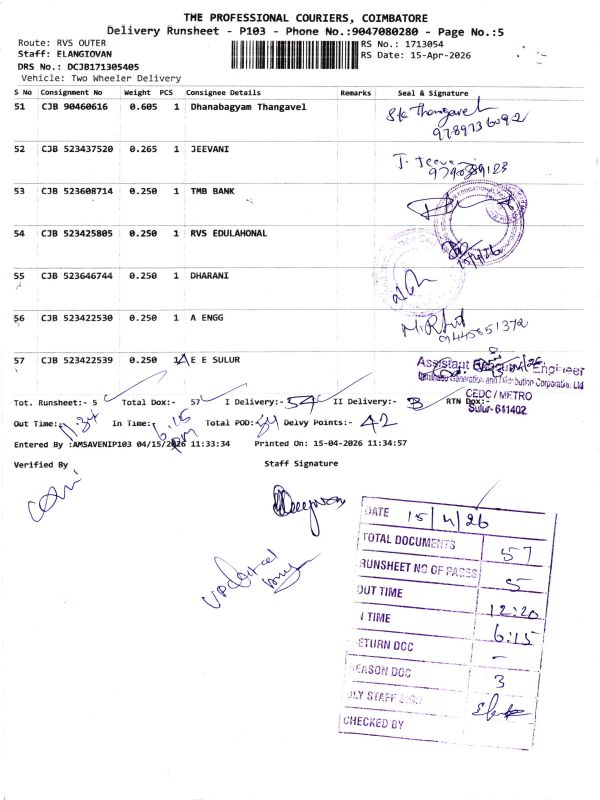 THE PROFESSIONAL COURIERS, COIMBATORE
Delivery Runsheet - P103 - Phone No.:9047080280 - Page No.:5
Route: RVS OUTER
RS No.: 1713054
Staff: ELANGIOVAN
RS Date: 15-Apr-2026
DRS No.: DCJB171305405
Vehicle: Two Wheeler Delivery
S No Consignment No Weight PCS Consignee Details Remarks Seal & Signature
51 CJB 90460616 0.605 1 Dhanabagyam Thangavel
Thangavel
9789736092
52 CJB 523437520 0.265 1 JEEVANI
J. Jeevani
53 CJB 523608714 0.250 1 TMB BANK
54 CJB 523425805 0.250 1 RVS EDULAHONAL
15/4/26
55 CJB 523646744 0.250 1 DHARANI
56 CJB 523422530 0.250 1 A ENGG
9445851372
57 CJB 523422539 0.250 1 A E E SULUR
Assistant Executive Engineer
Generation and Distribution Corporation Ltd
CEDC / METRO
Sulur- 641402
Tot. Runsheet:- 5 Total Dox:- 57 I Delivery:- 54 II Delivery:- 3 RTN Dox:-
Out Time: 11:34 In Time: 6:15 pm Total POD:- 54 Delvy Points:- 42
Entered By :AMSAVENIP103 04/15/2026 11:33:34 Printed On: 15-04-2026 11:34:57
Verified By Staff Signature
Updated
DATE 15/4/26
TOTAL DOCUMENTS 57
RUNSHEET NO OF PAGES 5
OUT TIME 12:20
TIME 6:15
RETURN DOC -
REASON DOC 3
DLY STAFF SIGN
CHECKED BY